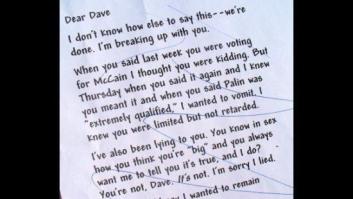 Dear Dave
I don't know how else to say this--we're
done. I'm breaking up with you.
When you said last week you were voting
for McCain I thought you were kidding. But
Thursday when you said it again and I knew
you meant it and when you said Palin was
"extremely qualified," I wanted to vomit. I
knew you were limited but not retarded.
I've also been lying to you. You know in sex
how you think you're "big" and you always
want me to tell you it's true, and I do?
You're not, Dave. It's not. I'm sorry I lied.
I wanted to remain